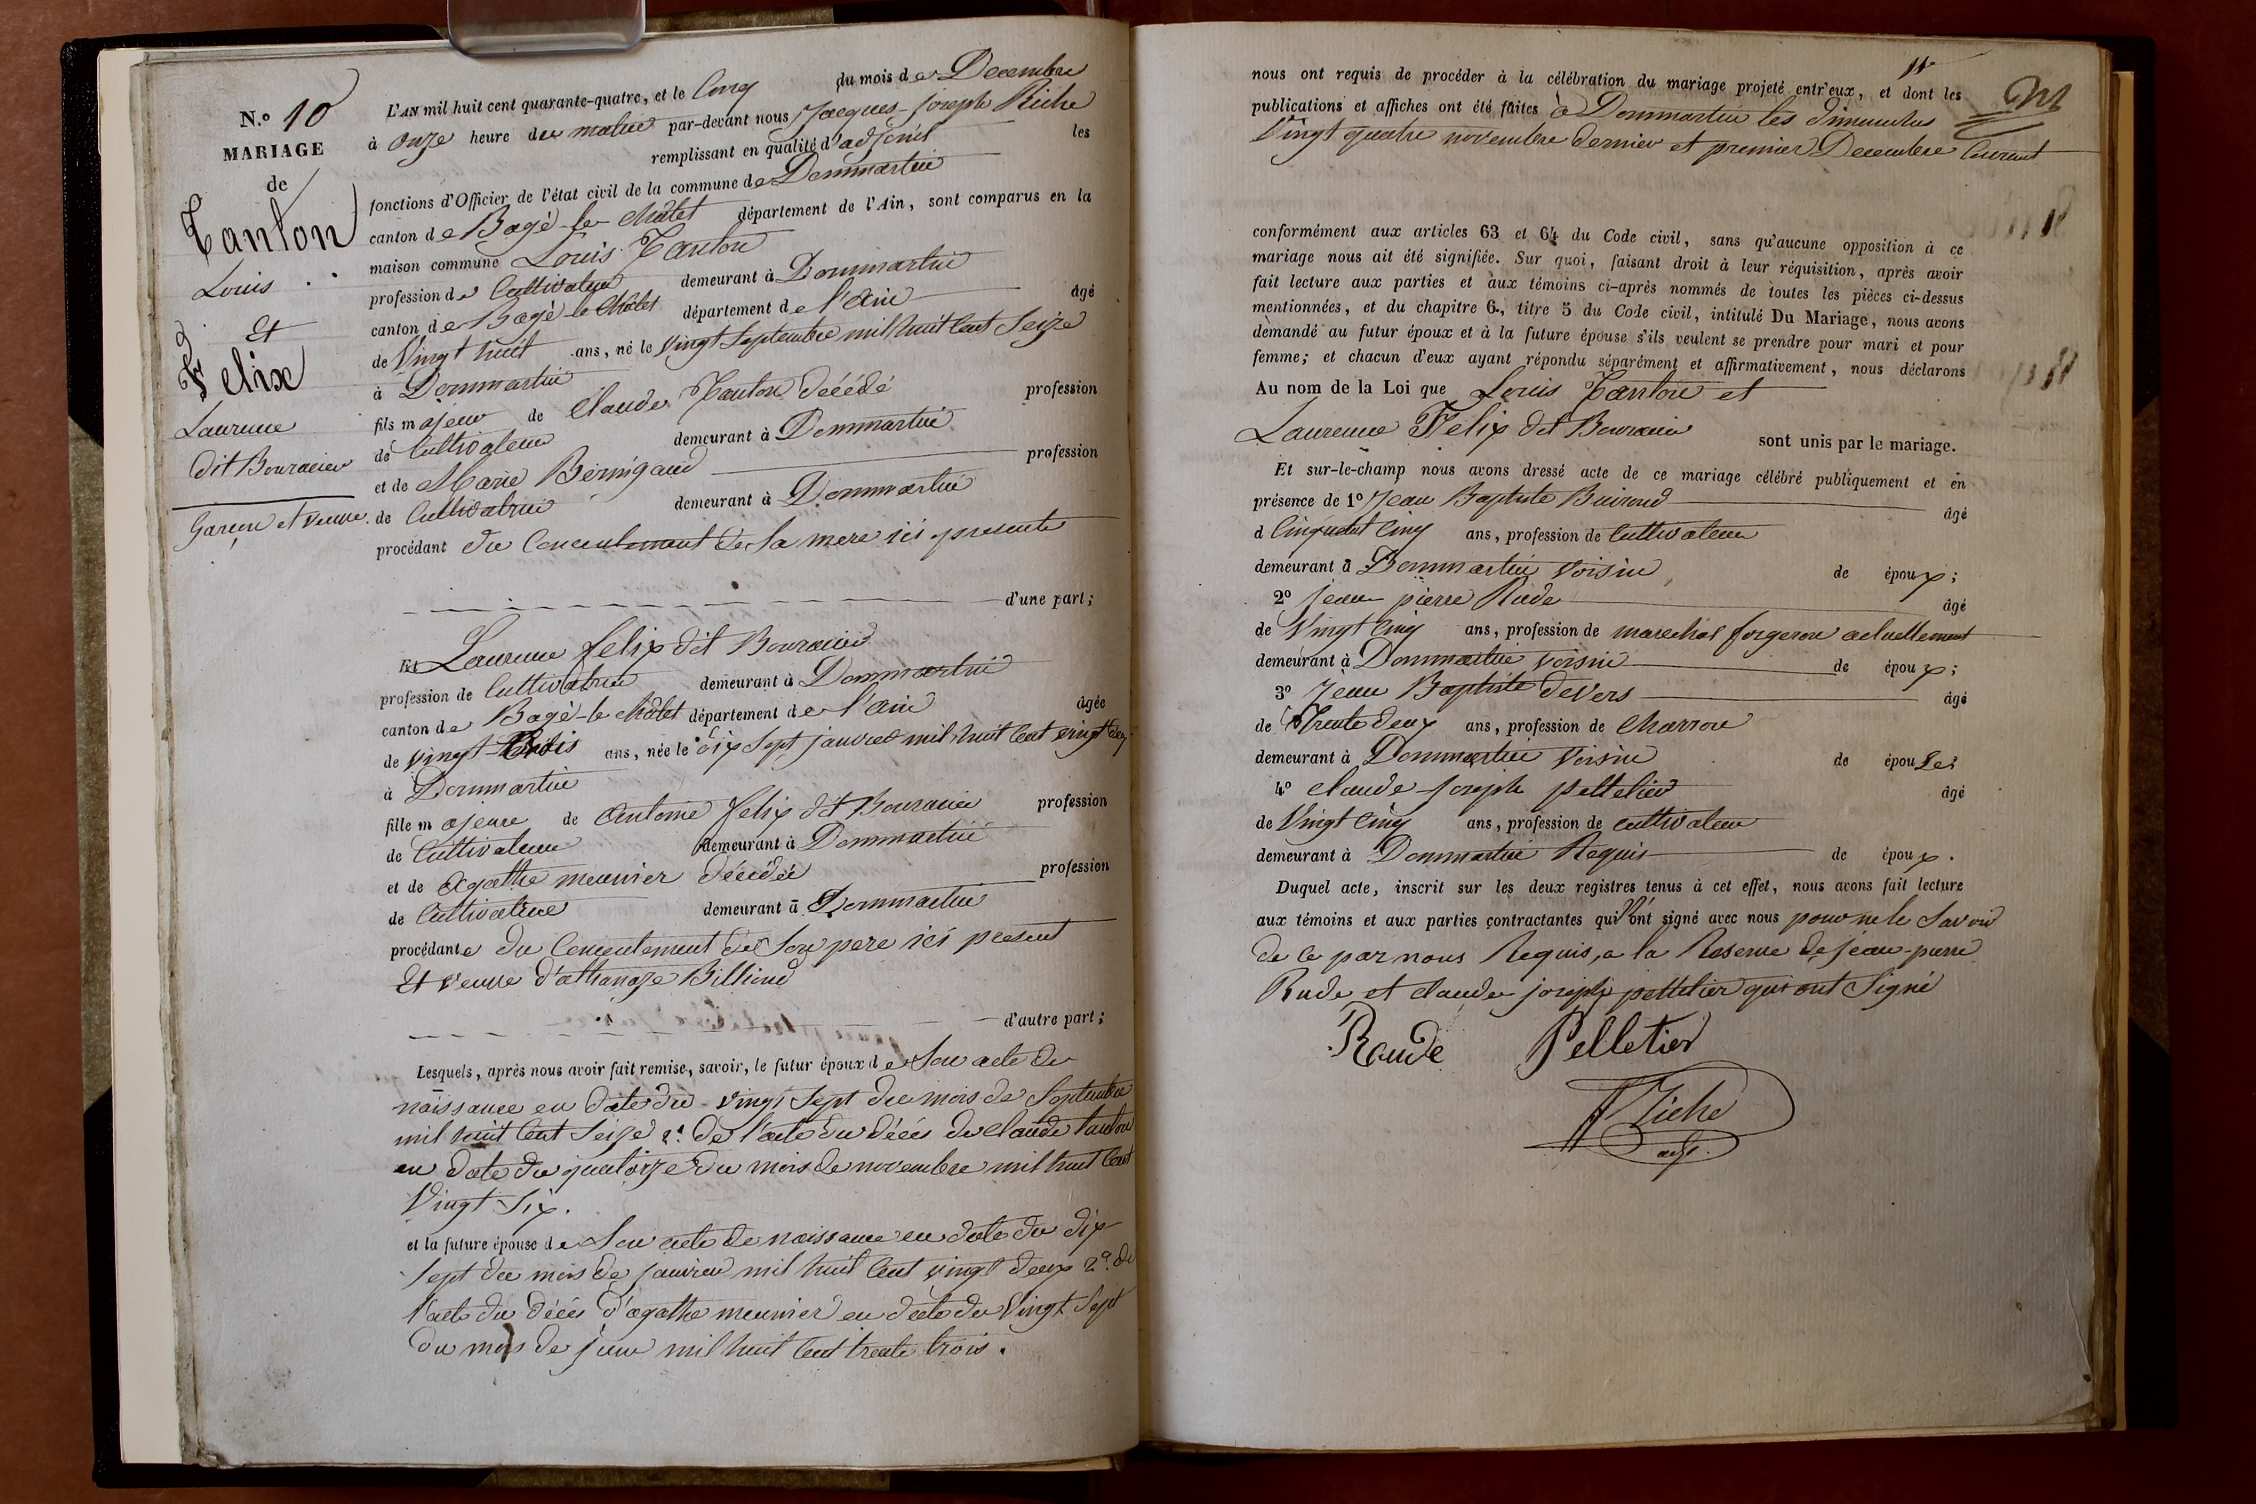 N.º 10
MARIAGE
de
Tanton
Louis
Et
Felix
Laurence
dit Bouracier
Garçon et veuve
L'AN mil huit cent quarante-quatre, et le Cinq du mois de Decembre
à onze heure du matin par-devant nous Jacques-joseph Riche
remplissant en qualité d'adjoint les
fonctions d'Officier de l'état civil de la commune de Dommartin
canton de Bagé-le-châtel département de l'Ain, sont comparus en la
maison commune Louis Tanton
profession de Cultivateur demeurant à Dommartin
canton de Bagé-le-Châtel département de l'Ain âgé
de Vingt huit ans, né le vingt Septembre mil huit Cent Seize
à Dommartin
fils majeur de Claude Tanton décédé profession
de Cultivateur demeurant à Dommartin
et de Marie Bernigaud profession
de Cultivatrice demeurant à Dommartin
procédant du Consentement de la mere ici presente
d'une part;
Et Laurence felix dit Bouracier
profession de Cultivatrice demeurant à Dommartin
canton de Bagé-le-châtel département de l'Ain âgée
de vingt-trois ans, née le dix Sept janvier mil huit Cent vingt deux
à Dommartin
fille majeure de Antoine felix dit Bouracier profession
de Cultivateur demeurant à Dommartin
et de Agathe meunier décédée profession
de Cultivatrice demeurant à Dommartin
procédante du Consentement de Son pere ici present
Et veuve d'athanaze Billioud
d'autre part;
Lesquels, après nous avoir fait remise, savoir, le futur époux de Son acte de
naissance en date du vingt Sept du mois de Septembre
mil huit Cent Seize 2º de l'acte du décés de Claude Tanton
en date du quatorze du mois de novembre mil huit Cent
Vingt Six.
et la future épouse de Son acte de naissance en date du dix
Sept du mois de janvier mil huit Cent vingt deux 2º de
l'acte du décés d'agathe meunier en date du Vingt Sept
du mois de juin mil huit Cent trente trois.
nous ont requis de procéder à la célébration du mariage projeté entr'eux, et dont les
publications et affiches ont été faites à Dommartin les dimanches
Vingt quatre novembre dernier et premier Decembre Courant
conformément aux articles 63 et 64 du Code civil, sans qu'aucune opposition à ce
mariage nous ait été signifiée. Sur quoi, faisant droit à leur réquisition, après avoir
fait lecture aux parties et aux témoins ci-après nommés de toutes les pièces ci-dessus
mentionnées, et du chapitre 6, titre 5 du Code civil, intitulé Du Mariage, nous avons
demandé au futur époux et à la future épouse s'ils veulent se prendre pour mari et pour
femme; et chacun d'eux ayant répondu séparément et affirmativement, nous déclarons
Au nom de la Loi que Louis Tanton et
Laurence Felix dit Bouracier sont unis par le mariage.
Et sur-le-champ nous avons dressé acte de ce mariage célébré publiquement et en
présence de 1º Jean Baptiste Buiroud âgé
d Cinquant Cinq ans, profession de Cultivateur
demeurant à Dommartin voisin de époux;
2º Jean pierre Rude âgé
de Vingt Cinq ans, profession de marechal forgeron actuellement
demeurant à Dommartin voisin de époux;
3º Jean Baptiste devers âgé
de Trente deux ans, profession de Charron
demeurant à Dommartin voisin de épouse;
4º Claude-joseph pelletier âgé
de Vingt Cinq ans, profession de Cultivateur
demeurant à Dommartin Requis de époux.
Duquel acte, inscrit sur les deux registres tenus à cet effet, nous avons fait lecture
aux témoins et aux parties contractantes qui n'ont signé avec nous pour ne le Savoir
de ce par nous Requis, a la Reserve de jean-pierre
Rude et claude joseph pelletier qui ont Signé
Raude Pelletier
JJ Riche
adj.